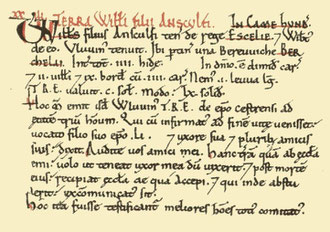 XXVII. TERRA Willi filii Ansculfi. In Came hund.
Wills filius Ansculfi ten de rege ESCELIE, 7 Wills
de eo. Vluuin tenuit. Ibi ptin una Bereuuiche BER
chelai. Int tot. IIII. hide. In dnio. ē dimid car.
7 II. uilli 7 IX. bord cū. IIII. car. Nem. II. leuua lg.
T.R.E. valuit. C. sol. modo. LX. solid.
Hoc M emit isd Vluuin T.R.E. de epo cestrensi. ad
ætatē triū houm. Qui cū infirmat ad finē uitæ uenisset.
uocato filio suo epo. Li. 7 uxore sua 7 plurib amicis
suis. dixit. Audite uos amici mei. Hanc tra quā ab æccła
emi. uolo ut teneat uxor mea dū uixerit. 7 post mortē
eius. recipiat eccła de qua accepi. 7 qui inde abstu
lerit. excomunicat sit.
Hoc ita fuisse testificant meliores hoēs toti comitat.